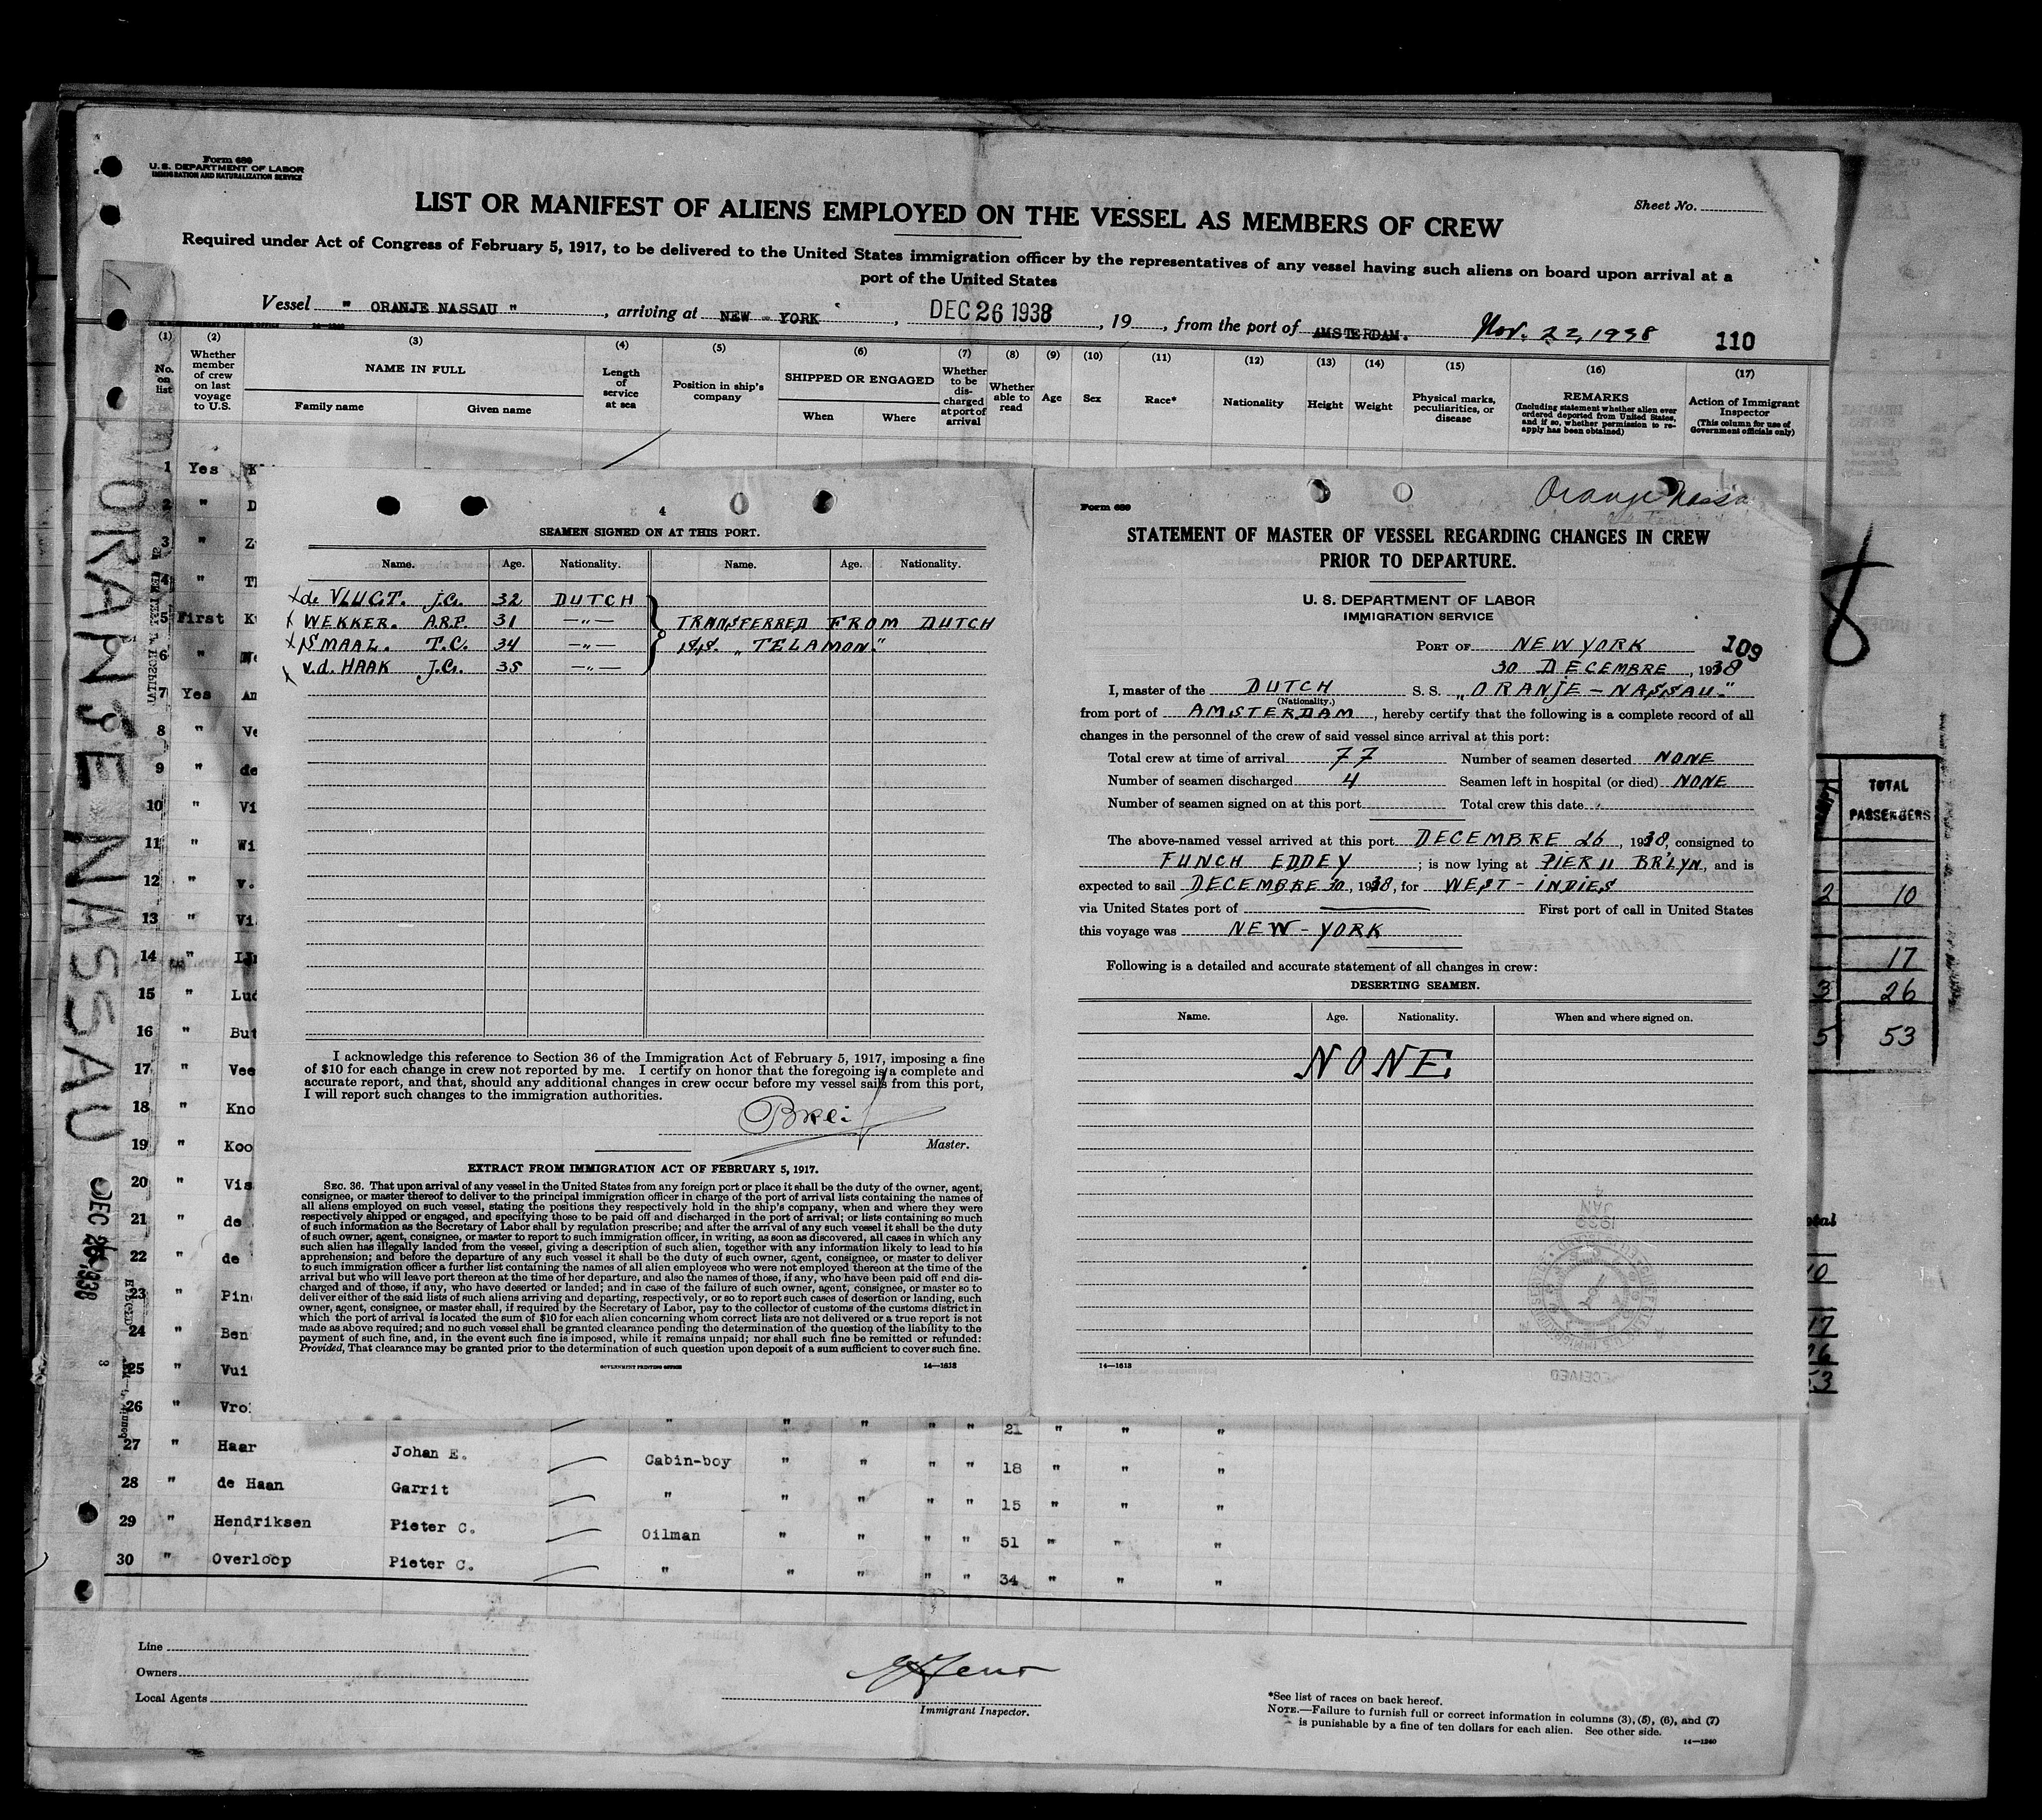 Form 689
U. S. DEPARTMENT OF LABOR
IMMIGRATION AND NATURALIZATION SERVICE
Sheet No.
LIST OR MANIFEST OF ALIENS EMPLOYED ON THE VESSEL AS MEMBERS OF CREW
Required under Act of Congress of February 5, 1917, to be delivered to the United States immigration officer by the representatives of any vessel having such aliens on board upon arrival at a
port of the United States
Vessel " ORANJE NASSAU ", arriving at NEW - YORK, DEC 26 1938, 19, from the port of AMSTERDAM. Nov. 22, 1938 110
(1) No. on list
(2) Whether member of crew on last voyage to U.S.
(3) NAME IN FULL
Family name Given name
(4) Length of service at sea
(5) Position in ship's company
(6) SHIPPED OR ENGAGED
When Where
(7) Whether to be discharged at port of arrival
(8) Whether able to read
(9) Age
(10) Sex
(11) Race*
(12) Nationality
(13) Height
(14) Weight
(15) Physical marks, peculiarities, or disease
(16) REMARKS
(Including statement whether alien ever ordered deported from United States, and if so, whether permission to re-apply has been obtained)
(17) Action of Immigrant Inspector
(This column for use of Government officials only)
ORANJE NASSAU
1 Yes
2 "
3 "
4 "
5 First
6 "
7 Yes
8 "
9 "
10 "
11 "
12 "
13 "
14 "
15 "
16 "
17 "
18 "
19 "
20 "
21 "
22 "
23 "
24 "
25 "
26 " " " " " 21 " " "
27 " Haar Johan E. Cabin-boy " " " " 18 " " "
28 " de Haan Garrit " " " " " 15 " " "
29 " Hendriksen Pieter C. Oilman " " " " 51 " " "
30 " Overloop Pieter C. " " " " " 34 " " "
Line
Owners
Local Agents
Immigrant Inspector.
*See list of races on back hereof.
NOTE.—Failure to furnish full or correct information in columns (3), (5), (6), and (7)
is punishable by a fine of ten dollars for each alien. See other side.
14—1240
4
SEAMEN SIGNED ON AT THIS PORT.
Name. Age. Nationality. Name. Age. Nationality.
de VLUGT. J.C. 32 DUTCH
WEKKER. A.R.P. 31 —"— TRANSFERRED FROM DUTCH
SMAAL. T.C. 34 —"— s.s. "TELAMON."
v.d. HAAK J.C. 35 —"—
I acknowledge this reference to Section 36 of the Immigration Act of February 5, 1917, imposing a fine
of $10 for each change in crew not reported by me. I certify on honor that the foregoing is a complete and
accurate report, and that, should any additional changes in crew occur before my vessel sails from this port,
I will report such changes to the immigration authorities.
Master.
EXTRACT FROM IMMIGRATION ACT OF FEBRUARY 5, 1917.
SEC. 36. That upon arrival of any vessel in the United States from any foreign port or place it shall be the duty of the owner, agent,
consignee, or master thereof to deliver to the principal immigration officer in charge of the port of arrival lists containing the names of
all aliens employed on such vessel, stating the positions they respectively hold in the ship's company, when and where they were
respectively shipped or engaged, and specifying those to be paid off and discharged in the port of arrival; or lists containing so much
of such information as the Secretary of Labor shall by regulation prescribe; and after the arrival of any such vessel it shall be the duty
of such owner, agent, consignee, or master to report to such immigration officer, in writing, as soon as discovered, all cases in which any
such alien has illegally landed from the vessel, giving a description of such alien, together with any information likely to lead to his
apprehension; and before the departure of any such vessel it shall be the duty of such owner, agent, consignee, or master to deliver
to such immigration officer a further list containing the names of all alien employees who were not employed thereon at the time of the
arrival but who will leave port thereon at the time of her departure, and also the names of those, if any, who have been paid off and dis-
charged and of those, if any, who have deserted or landed; and in case of the failure of such owner, agent, consignee, or master so to
deliver either of the said lists of such aliens arriving and departing, respectively, or so to report such cases of desertion or landing, such
owner, agent, consignee, or master shall, if required by the Secretary of Labor, pay to the collector of customs of the customs district in
which the port of arrival is located the sum of $10 for each alien concerning whom correct lists are not delivered or a true report is not
made as above required; and no such vessel shall be granted clearance pending the determination of the question of the liability to the
payment of such fine, and, in the event such fine is imposed, while it remains unpaid; nor shall such fine be remitted or refunded:
Provided, That clearance may be granted prior to the determination of such question upon deposit of a sum sufficient to cover such fine.
GOVERNMENT PRINTING OFFICE 14—1613
Form 689
STATEMENT OF MASTER OF VESSEL REGARDING CHANGES IN CREW
PRIOR TO DEPARTURE.
U. S. DEPARTMENT OF LABOR
IMMIGRATION SERVICE
PORT OF NEW YORK 109
30 DECEMBRE, 1938
I, master of the DUTCH S. S. "ORANJE - NASSAU."
(Nationality.)
from port of AMSTERDAM, hereby certify that the following is a complete record of all
changes in the personnel of the crew of said vessel since arrival at this port:
Total crew at time of arrival 77 Number of seamen deserted NONE
Number of seamen discharged 4 Seamen left in hospital (or died) NONE
Number of seamen signed on at this port Total crew this date
The above-named vessel arrived at this port DECEMBRE 26, 1938, consigned to
FUNCH EDDEY; is now lying at PIER 11 BR'LYN, and is
expected to sail DECEMBRE 30, 1938, for WEST - INDIES
via United States port of First port of call in United States
this voyage was NEW - YORK
Following is a detailed and accurate statement of all changes in crew:
DESERTING SEAMEN.
Name. Age. Nationality. When and where signed on.
NONE.
14—1613
8
TOTAL
PASSENGERS
2 10
17
3 26
5 53